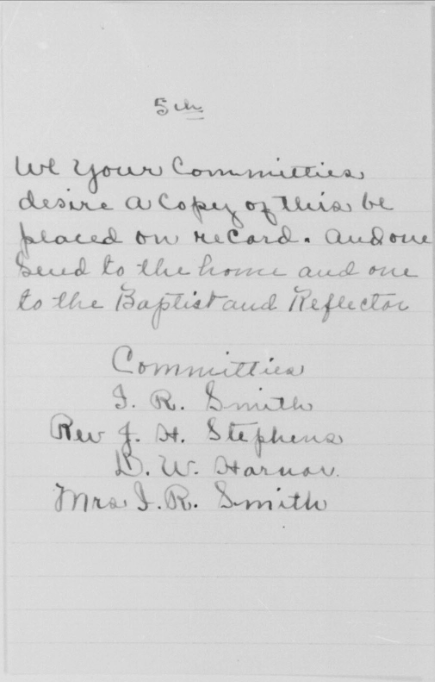 5th
We Your Committies
desire a Copy of this be
placed on record. and one
Send to the home and one
to the Baptist and Reflector
Committies
I. R. Smith
Rev J. H. Stephens
D. W. Harnor.
Mrs I. R. Smith